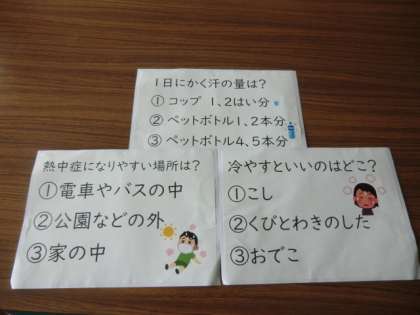 1日にかく汗の量は?
① コップ 1、2はい分
② ペットボトル1、2本分
③ ペットボトル4、5本分
熱中症になりやすい場所は?
①電車やバスの中
②公園などの外
③家の中
冷やすといいのはどこ?
①こし
②くびとわきのした
③おでこ